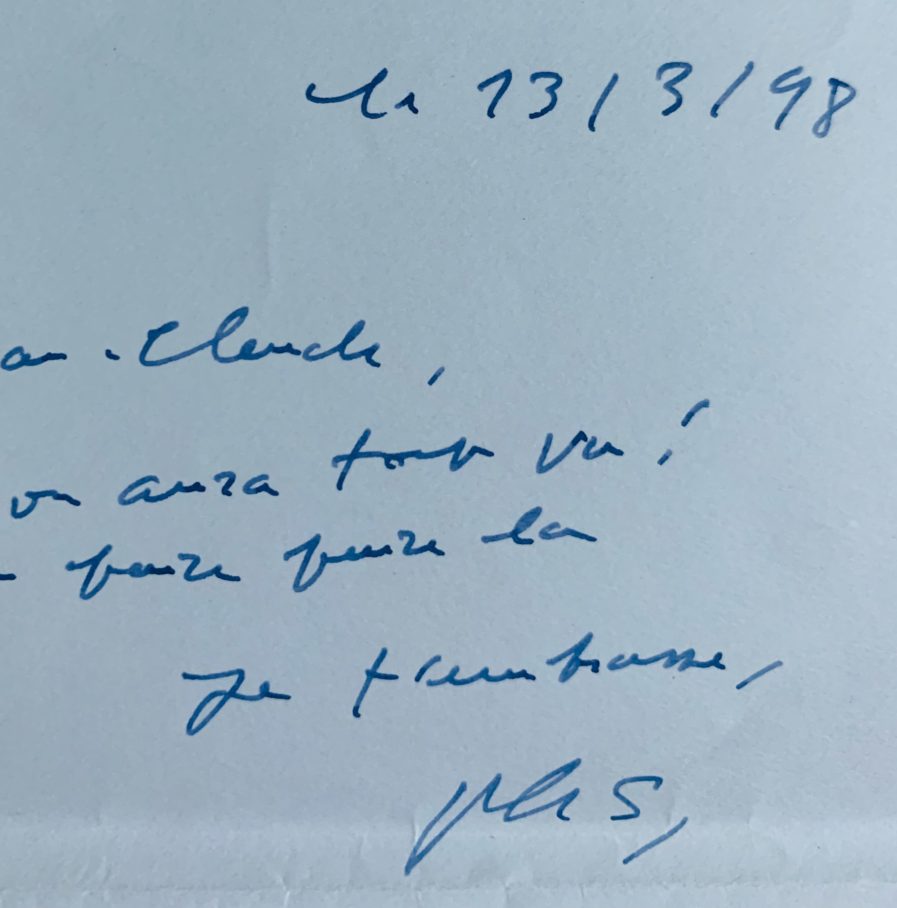 le 13/3/98
an-Claude,
on aura tout vu!
faire faire la
Je t'embrasse,
PhS,